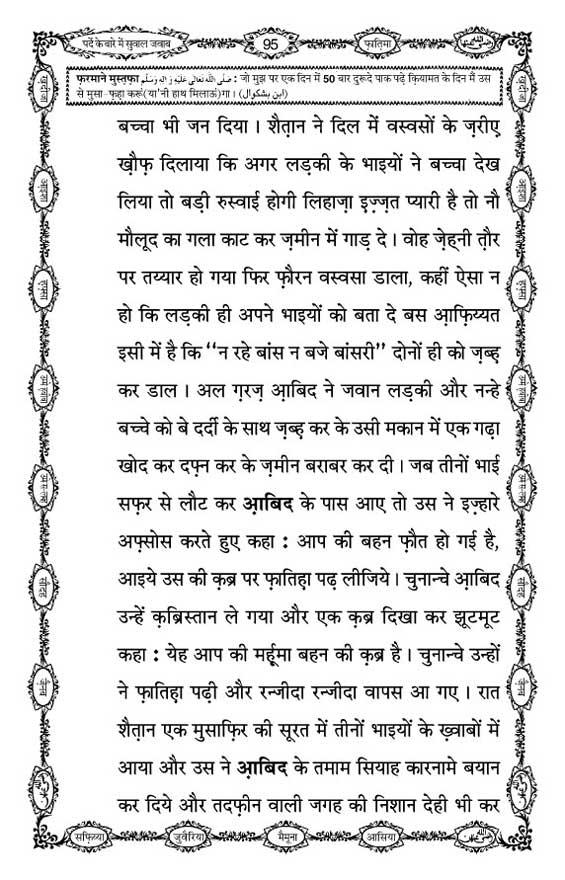 पर्दे के बारे में सुवाल जवाब
95
फ़ातिमा
फ़रमाने मुस्तफ़ा صَلَّى اللّٰهُ تَعَالٰى عَلَيْهِ وَاٰلِهٖ وَسَلَّم : जो मुझ पर एक दिन में 50 बार दुरूदे पाक पढ़े क़ियामत के दिन मैं उस
से मुसा-फ़हा करूं(या'नी हाथ मिलाऊं)गा। (ابن بشكوال)
बच्चा भी जन दिया। शैत़ान ने दिल में वस्वसों के ज़रीए
ख़ौफ़ दिलाया कि अगर लड़की के भाइयों ने बच्चा देख
लिया तो बड़ी रुस्वाई होगी लिहाज़ा इ़ज़्ज़त प्यारी है तो नौ
मौलूद का गला काट कर ज़मीन में गाड़ दे। वोह ज़ेह्नी त़ौर
पर तय्यार हो गया फिर फ़ौरन वस्वसा डाला, कहीं ऐसा न
हो कि लड़की ही अपने भाइयों को बता दे बस आ़फ़िय्यत
इसी में है कि ‘‘न रहे बांस न बजे बांसरी’’ दोनों ही को ज़ब्ह़
कर डाल। अल ग़रज़ आ़बिद ने जवान लड़की और नन्हे
बच्चे को बे दर्दी के साथ ज़ब्ह़ कर के उसी मकान में एक गढ़ा
खोद कर दफ़्न कर के ज़मीन बराबर कर दी। जब तीनों भाई
सफ़र से लौट कर आ़बिद के पास आए तो उस ने इज़्हारे
अफ़्सोस करते हुए कहा : आप की बहन फ़ौत हो गई है,
आइये उस की क़ब्र पर फ़ातिह़ा पढ़ लीजिये। चुनान्चे आ़बिद
उन्हें क़ब्रिस्तान ले गया और एक क़ब्र दिखा कर झूटमूट
कहा : येह आप की मर्ह़ूमा बहन की क़ब्र है। चुनान्चे उन्हों
ने फ़ातिह़ा पढ़ी और रन्जीदा रन्जीदा वापस आ गए। रात
शैत़ान एक मुसाफ़िर की सूरत में तीनों भाइयों के ख़्वाबों में
आया और उस ने आ़बिद के तमाम सियाह कारनामे बयान
कर दिये और तदफ़ीन वाली जगह की निशान देही भी कर
सफ़िय्या
जुवैरिया
मैमूना
आसिया